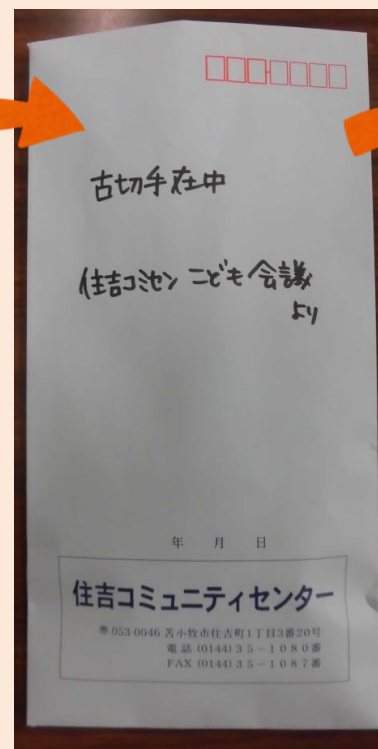 古切手在中
住吉コミセン こども会議
より
年 月 日
住吉コミュニティセンター
〒053-0046 苫小牧市住吉町1丁目3番20号
電話 (0144)35-1080番
FAX (0144)35-1087番